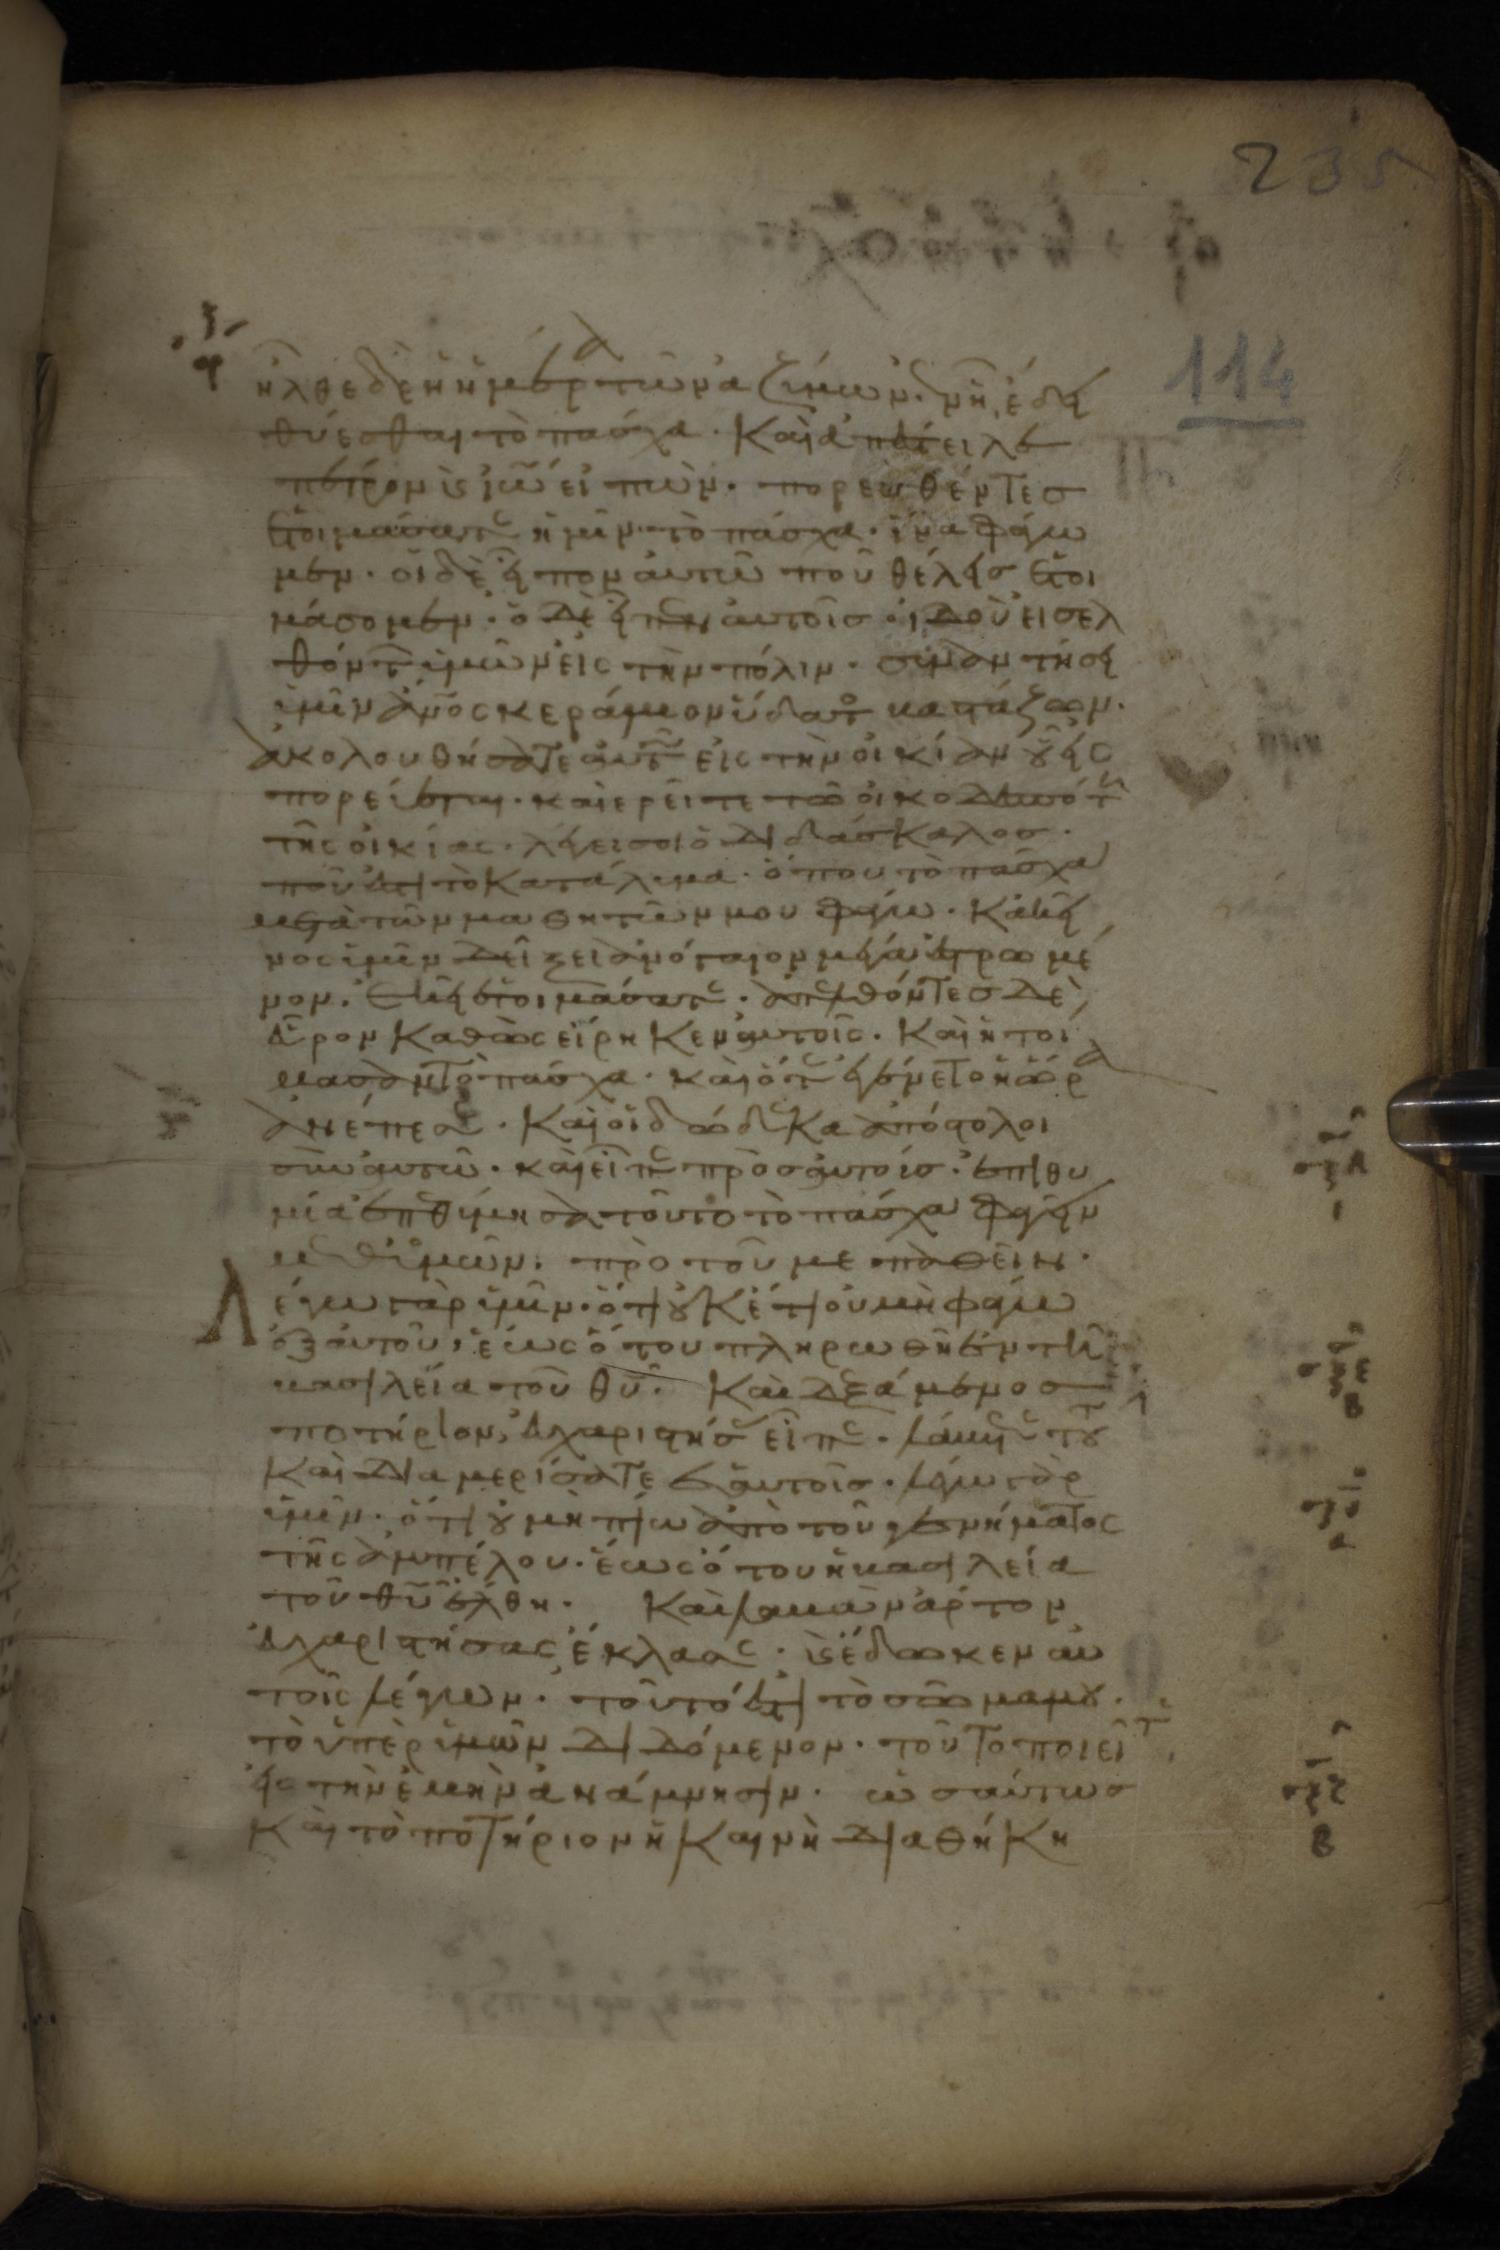 235
114
ἦλθε δὲ ἡ ἡμέρα τῶν ἀζύμων. ἐν ᾗ ἔδει
θύεσθαι τὸ πάσχα. Καὶ ἀπέστειλε
πέτρον ϗ ἰω εἰπών. πορευθέντες
ἑτοιμάσατε ἡμῖν τὸ πάσχα. ἵνα φάγω
μεν. οἱ δὲ εἶπον αὐτῶ ποῦ θέλεις ἑτοι
μάσομεν. ὁ δὲ εἶπεν αὐτοῖς. ἰδοὺ εἰσελ
θόντων ὑμῶν εἰς τὴν πόλιν. συναντήσει
ὑμῖν ἄνος κεράμιον ὕδατος βαστάζων.
ἀκολουθήσατε αὐτῶ εἰς τὴν οἰκίαν οὗ εἰς
πορεύεται. καὶ ἐρεῖτε τῶ οἰκοδεσπότη
τῆς οἰκίας. λέγει σοι ὁ διδάσκαλος.
ποῦ ἐστι τὸ κατάλυμα. ὅπου τὸ πάσχα
μετὰ τῶν μαθητῶν μου φάγω. Κἀκεῖ
νος ὑμῖν δείξει ἀνόγαιον μέγα ἐστρωμέ
νον. ἐκεῖ ἑτοιμάσατε. ἀπελθόντες δὲ
εὗρον καθὼς εἴρηκεν αὐτοῖς. Καὶ ἡτοί
μασαν τὸ πάσχα. καὶ ὅτε ἐγένετο ἡ ὥρα
ἀνέπεσε. Καὶ οἱ δώδεκα ἀπόστολοι
σὺν αὐτῶ. καὶ εἶπε πρὸς αὐτούς. ἐπιθυ
μία ἐπεθύμησα τοῦτο τὸ πάσχα φαγεῖν
μεθ' ὑμῶν. πρὸ τοῦ με παθεῖν.
Λέγω γὰρ ὑμῖν. ὅτι οὐκέτι οὐ μὴ φάγω
ἐξ αὐτοῦ, ἕως ὅτου πληρωθῆ ἐν τῆ
βασιλεία τοῦ θυ. Καὶ δεξάμενος
ποτήριον, εὐχαριστήσας εἶπε. λάβετε τοῦτο
Καὶ διαμερίσατε ἑαυτοῖς. λέγω γὰρ
ὑμῖν. ὅτι οὐ μὴ πίω ἀπὸ τοῦ γεννήματος
τῆς ἀμπέλου. ἕως ὅτου ἡ βασιλεία
τοῦ θυ ἔλθη. Καὶ λαβὼν ἄρτον
εὐχαριστήσας ἔκλασε. ϗ ἔδωκεν αὐ
τοῖς λέγων. τοῦτό ἐστι τὸ σῶμα μου.
τὸ ὑπὲρ ὑμῶν διδόμενον. τοῦτο ποιεῖτε
εἰς τὴν ἐμὴν ἀνάμνησιν. ὡσαύτως
καὶ τὸ ποτήριον ἡ Καινὴ διαθήκη